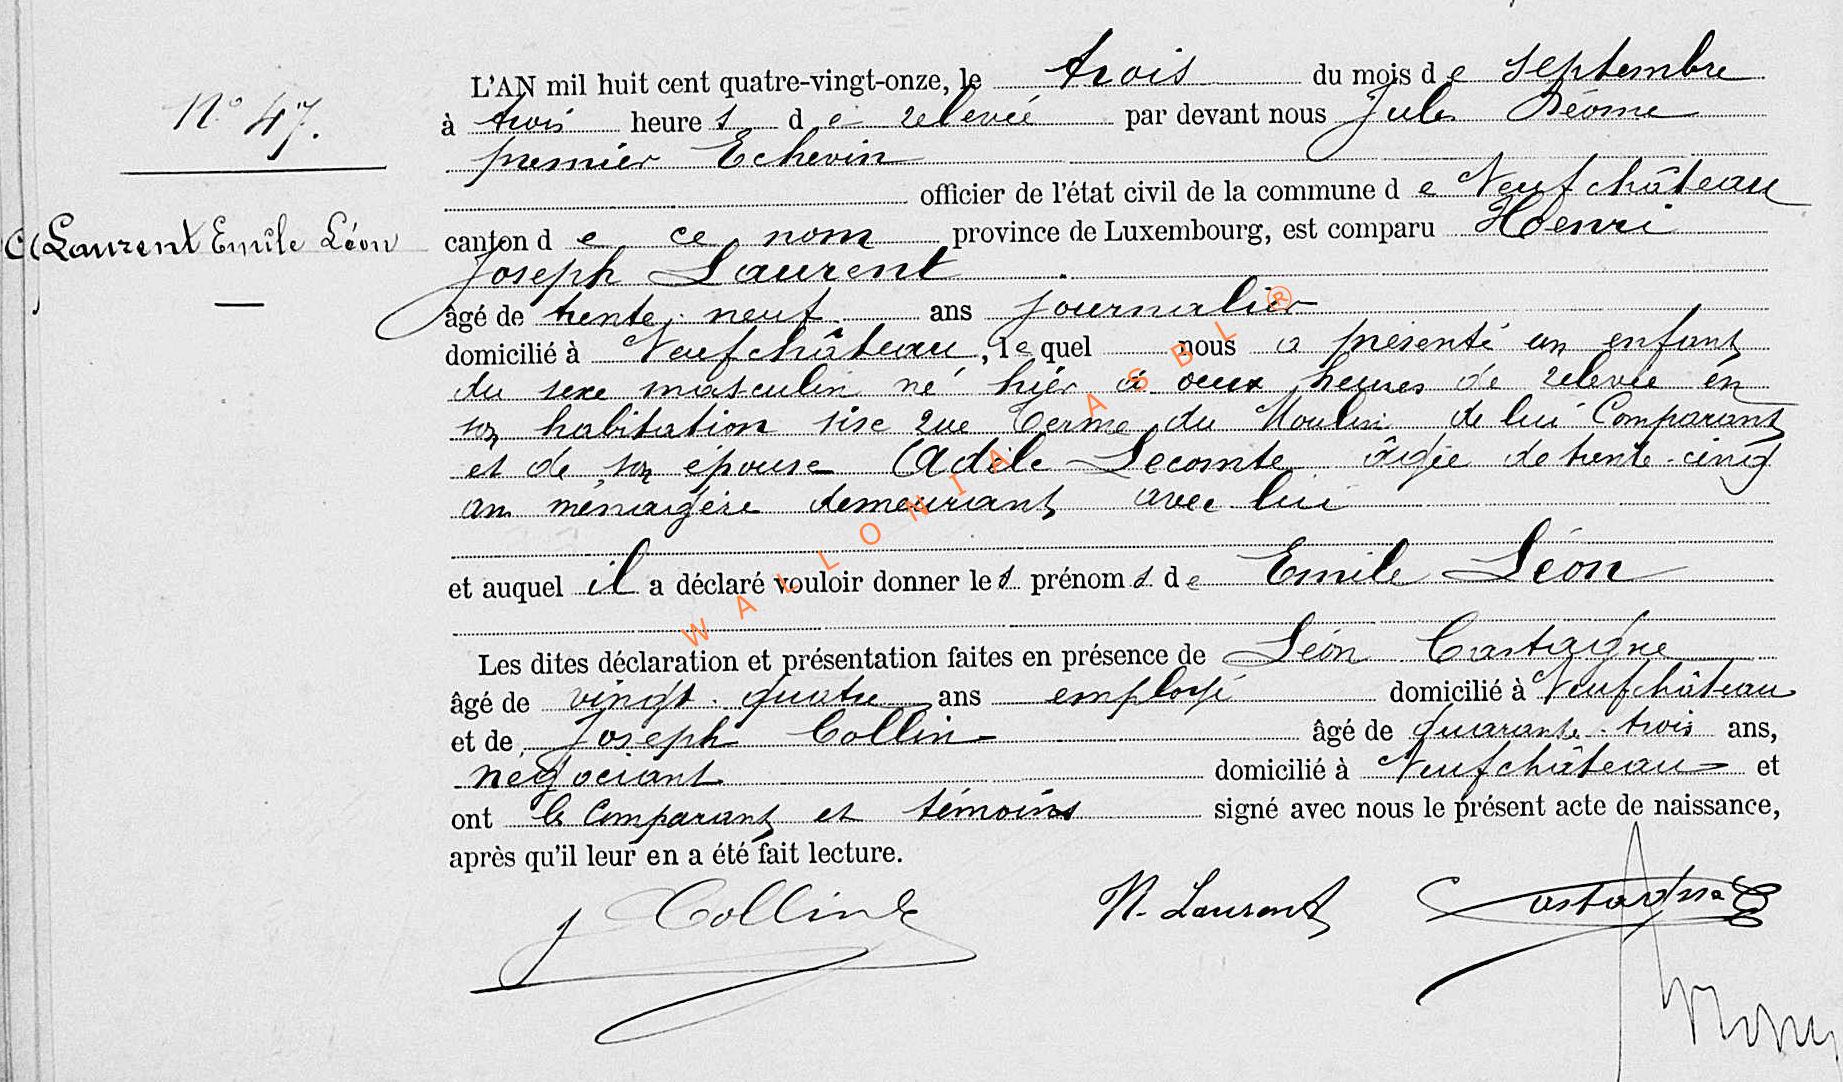 N° 47.
Laurent Emile Léon
L'AN mil huit cent quatre-vingt-onze, le trois du mois de septembre
à trois heures de relevée par devant nous Jules
premier Echevin
officier de l'état civil de la commune de Neufchâteau
canton de ce nom province de Luxembourg, est comparu Henri
Joseph Laurent
âgé de trente neuf ans journalier
domicilié à Neufchâteau, lequel nous a présenté un enfant
du sexe masculin né hier à deux heures de relevée en
son habitation sise rue Terme du Moulin de lui Comparant
et de son épouse Adèle Lecomte âgée de trente-cinq
ans ménagère demeurant avec lui
et auquel il a déclaré vouloir donner les prénoms de Emile Léon
Les dites déclaration et présentation faites en présence de Léon Castaigne
âgé de vingt-quatre ans employé domicilié à Neufchâteau
et de Joseph Collin âgé de quarante-trois ans,
négociant domicilié à Neufchâteau et
ont le Comparant et témoins signé avec nous le présent acte de naissance,
après qu'il leur en a été fait lecture.
J Collin H. Laurent Castaigne
WALLONIA ASBL ®